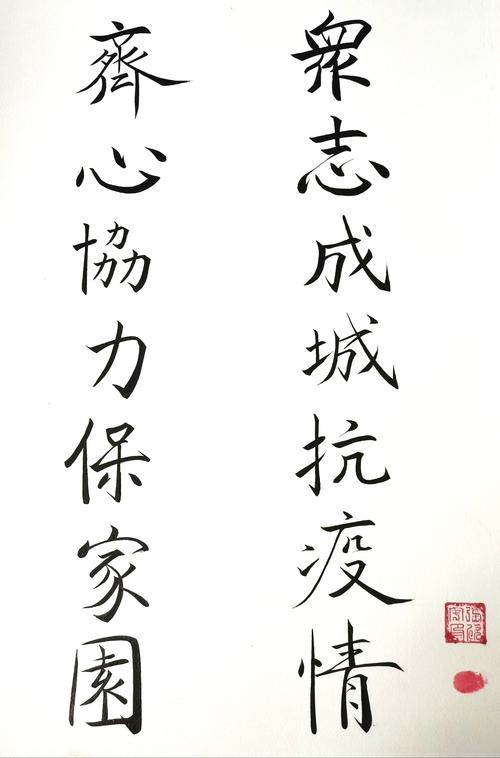 衆志成城抗疫情
齊心協力保家園